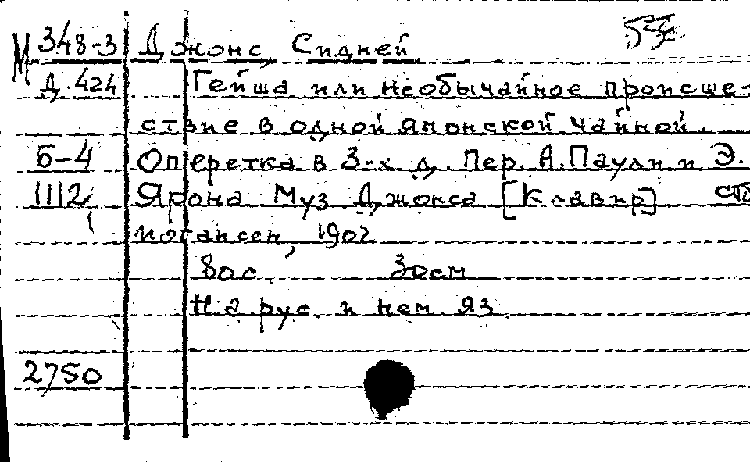 М 348-3 Джонс, Сидней
Д 424 Гейша или необычайное происше-
ствие в одной японской чайной.
Б-4 Оперетка в 3-х д. Пер. А. Паули и Э.
1112 Ярона Муз Джонса [Клавир]
Иогансен, 1902
80с. 30см
На рус. и нем. яз.
2750